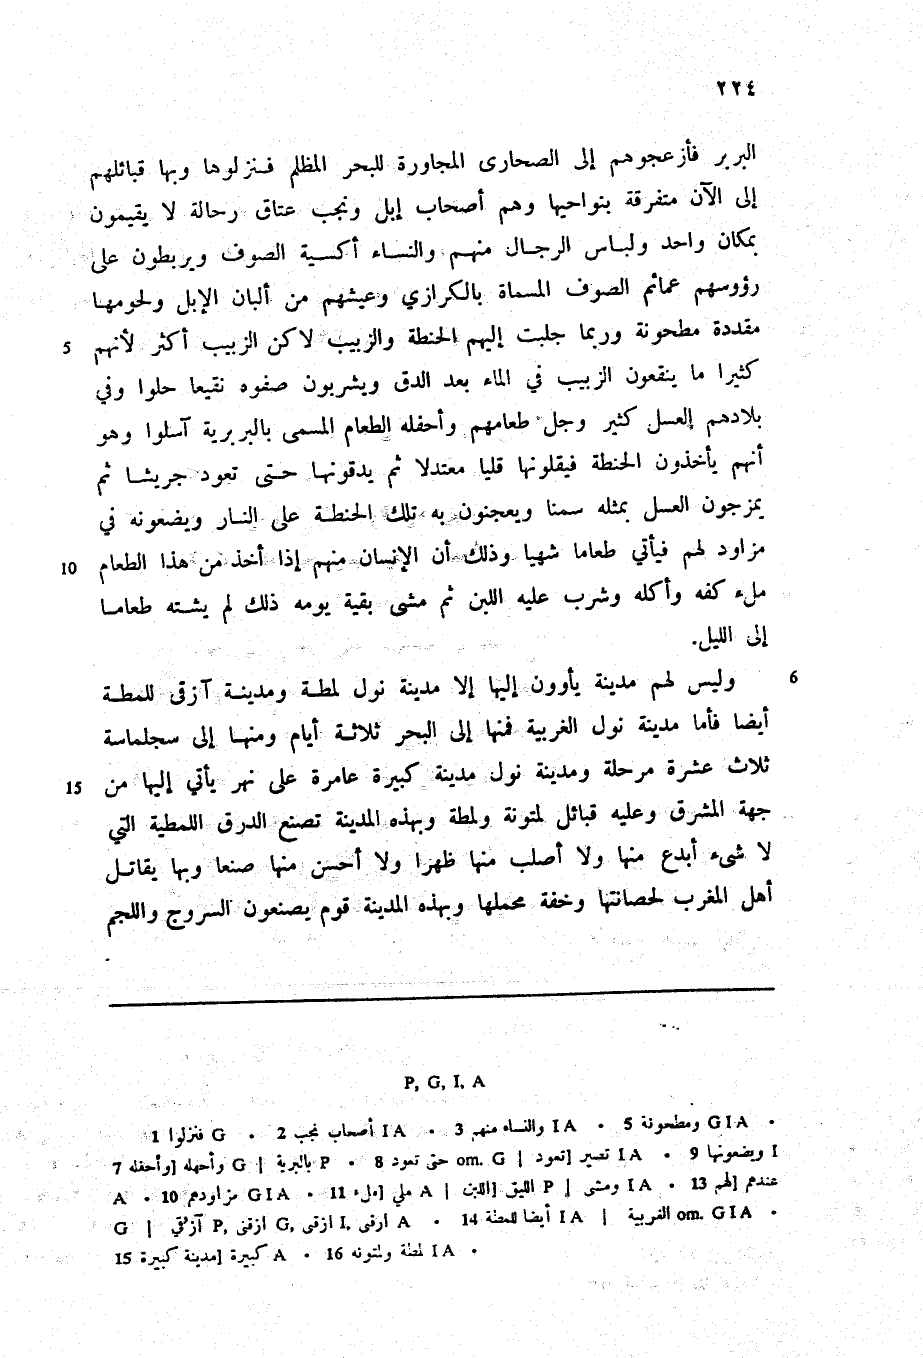 ٢٢٤
البربر فأزعجوهم إلى الصحارى المجاورة للبحر المظلم فـنزلوها وبها قبائلهم
إلى الآن متفرقة بنواحيها وهم أصحاب إبل ونجب عتاق رحالة لا يقيمون
بمكان واحد ولباس الرجال منهم والنساء أكسية الصوف ويربطون على
رؤوسهم عمائم الصوف المسماة بالكرازي وعيشهم من ألبان الإبل ولحومها
مقددة مطحونة وربما جلبت إليهم الحنطة والزبيب لاكن الزبيب أكثر لأنهم 5
كثيرا ما ينقعون الزبيب في الماء بعد الدق ويشربون صفوه نقيعا حلوا وفي
بلادهم العسل كثير وجل طعامهم وأحفله الطعام المسمى بالبربرية آسلوا وهو
أنهم يأخذون الحنطة فيقلونها قليا معتدلا ثم يدقونها حتى تعود جريشا ثم
يمزجون العسل بمثله سمنا ويعجنون به تلك الحنطة على النار ويضعونه في
مزاود لهم فيأتي طعاما شهيا وذلك أن الإنسان منهم إذا أخذ من هذا الطعام 10
ملء كفه وأكله وشرب عليه اللبن ثم مشى بقية يومه ذلك لم يشته طعاما
إلى الليل.
6 وليس لهم مدينة يأوون إليها إلا مدينة نول لمطة ومدينة آزقى للمطة
أيضا فأما مدينة نول الغربية فمنها إلى البحر ثلاثة أيام ومنها إلى سجلماسة
ثلاث عشرة مرحلة ومدينة نول مدينة كبيرة عامرة على نهر يأتي إليها من 15
جهة المشرق وعليه قبائل لمتونة ولمطة وبهذه المدينة تصنع الدرق اللمطية التي
لا شيء أبدع منها ولا أصلب منها ظهرا ولا أحسن منها صنعا وبها يقاتل
أهل المغرب لحصانتها وخفة محملها وبهذه المدينة قوم يصنعون السروج واللجم
P, G, I, A
1 فنزلوا G • 2 أصحاب نجب IA • 3 والنساء منهم IA • 5 ومطحونة GIA •
7 وأحفله] وأحهله G | بالبرية P • 8 حتى تعود om. G | تعود] تصير IA • 9 ويضعونها I
A • 10 مزاودهم GIA • 11 ملء] ملي A | اللبن] الليق P | ومشى IA • 13 لهم] عندهم
G | آزقي P, ازقى G, ازقى I, ارقى A • 14 أيضا للمطة IA | الغربية om. GIA •
15 مدينة كبيرة] كبيرة A • 16 لمطة ولمتونه IA •